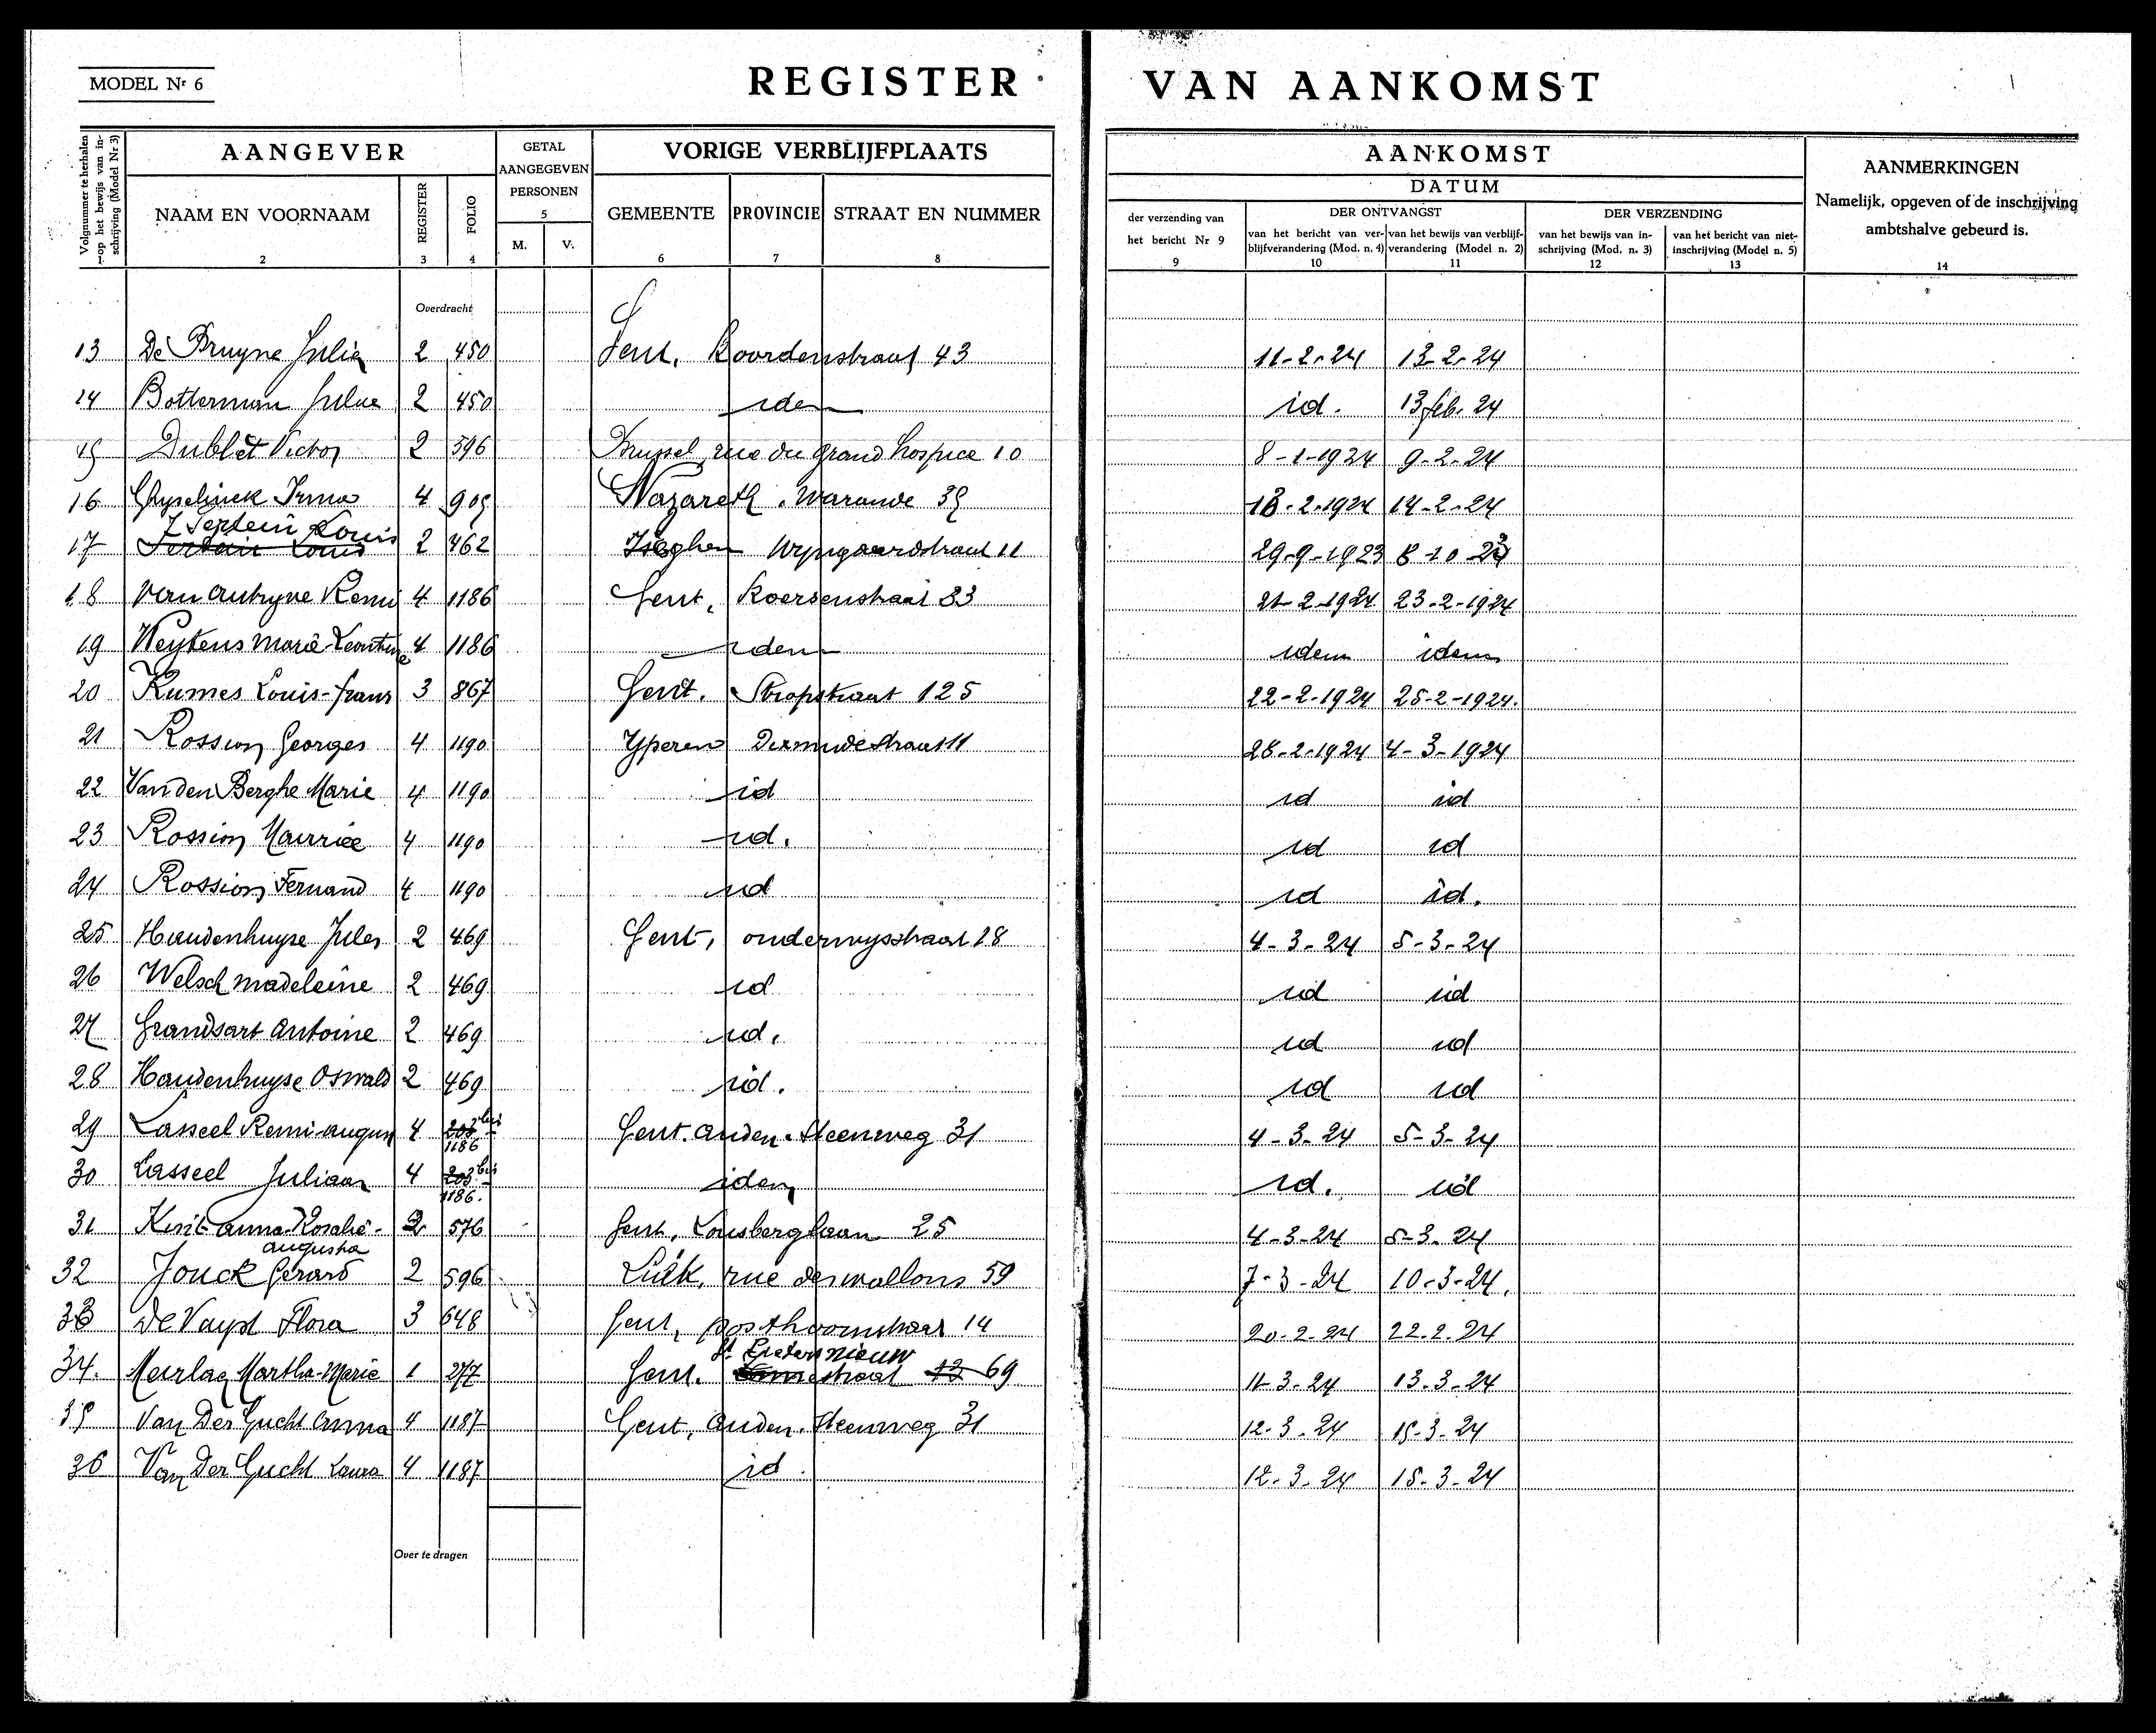 MODEL Nr 6
REGISTER VAN AANKOMST
Volgnummer te herhalen op het bewijs van inschrijving (Model Nr 3) 1
AANGEVER
NAAM EN VOORNAAM 2
REGISTER 3
FOLIO 4
GETAL AANGEGEVEN PERSONEN 5
M. V.
VORIGE VERBLIJFPLAATS
GEMEENTE 6
PROVINCIE 7
STRAAT EN NUMMER 8
AANKOMST
DATUM
der verzending van het bericht Nr 9 9
DER ONTVANGST
van het bericht van verblijfverandering (Mod. n. 4) 10
van het bewijs van verblijfverandering (Model n. 2) 11
DER VERZENDING
van het bewijs van inschrijving (Mod. n. 3) 12
van het bericht van nietinschrijving (Model n. 5) 13
AANMERKINGEN
Namelijk, opgeven of de inschrijving ambtshalve gebeurd is. 14
Overdracht
13 De Bruyne Julia 2 450 Gent, Koordenstraat 43 11-2-24 13-2-24
14 Botterman 2 450 idem id. 13 feb. 24
15 Dublet Victor 2 396 Brussel, rue du grand hospice 10 8-1-1924 9-2-24
16 Ghyselinck Irma 4 905 Nazareth. Warande 35 13-2-1924 14-2-24
17 Louis 2 462 Iseghem Wyngaardstraat 11 29-9-1923 8-10-23
18 Van Autryve Remi 4 1186 Gent, 33 21-2-1924 23-2-1924
19 Weytens Marie-Leontine 4 1186 idem idem idem
20 Kumes Louis-frans 3 867 Gent. Stropstraat 125 22-2-1924 25-2-1924.
21 Rossion Georges 4 1190 Yperen Dixmudestraat 11 28-2-1924 4-3-1924
22 Van den Berghe Marie 4 1190 id id id
23 Rossion Maurice 4 1190 id. id id
24 Rossion Fernand 4 1190 id id id.
25 Haudenhuyse Jules 2 469 Gent, onderwysstraat 28 4-3-24 5-3-24
26 Welsch Madeleine 2 469 id id id
27 Grandsart Antoine 2 469 id. id id
28 Haudenhuyse Oswald 2 469 id. id id
29 Lasseel Remi-august 4 203 bis 1186 Gent. Auden. Steenweg 31 4-3-24 5-3-24
30 Lasseel Juliaan 4 203 bis 1186. idem id. id
31 Anna-Rosalie-Augusta 2 576 Gent, Lousberglaan 25 4-3-24 5-3-24
32 Jonck Gerard 2 596 Luik, rue des wallons 59 7-3-24 10-3-24.
33 De Vuyst Flora 3 648 Gent, posthoornstraat 14 20-2-24 22.2.24
34. Martha-Marie 1 277 Gent. St Pieters nieuwstraat 12 69 11-3-24 13.3-24
35 Van Der Gucht Anna 4 1187 Gent, Auden. Steenweg 31 12-3-24 15-3-24
36 Van Der Gucht Laura 4 1187 id. 12-3-24 15-3-24
Over te dragen